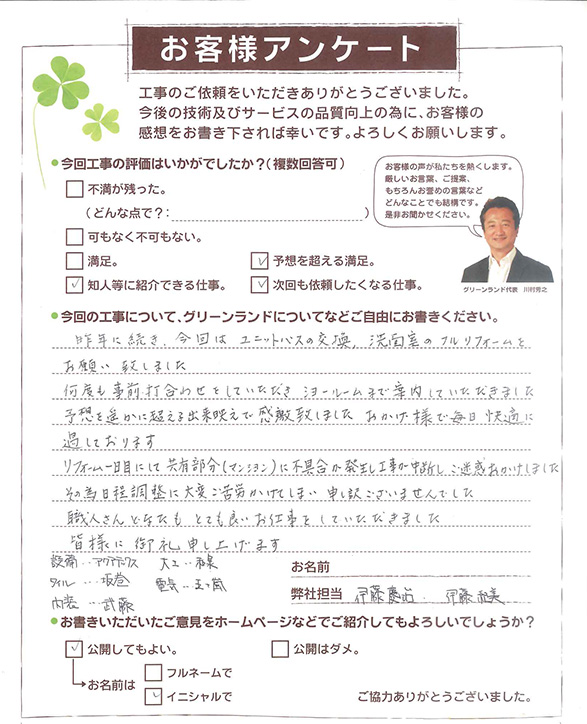 お客様アンケート
工事のご依頼をいただきありがとうございました。
今後の技術及びサービスの品質向上の為に、お客様の
感想をお書き下されば幸いです。よろしくお願いします。
●今回工事の評価はいかがでしたか?(複数回答可)
お客様の声が私たちを熱くします。
厳しいお言葉、ご提案、
もちろんお誉めの言葉など
どんなことでも結構です。
是非お聞かせください。
グリーンランド代表 川村秀之
□不満が残った。
(どんな点で?: )
□可もなく不可もない。
□満足。 ☑予想を超える満足。
☑知人等に紹介できる仕事。 ☑次回も依頼したくなる仕事。
●今回の工事について、グリーンランドについてなどご自由にお書きください。
昨年に続き、今回は ユニットバスの交換、洗面室のフルリフォームを
お願い致しました
何度も事前打合わせをしていただき ショールームまで案内していただきました
予想を遥かに超える出来映えで感激致しました おかげ様で毎日快適に
過しております
リフォーム一日目にして共有部分(マンション)に不具合が発生し工事が中断しご迷惑おかけしました
その為日程調整に大変ご苦労かけてしまい 申し訳ございませんでした
職人さんどなたも とても良いお仕事をしていただきました
皆様に御礼申し上げます
設備‥アクアテックス 大工‥
タイル‥坂巻 電気‥五十嵐
内装‥武藤
お名前
弊社担当 伊藤 伊藤
●お書きいただいたご意見をホームページなどでご紹介してもよろしいでしょうか?
☑公開してもよい。 □公開はダメ。
→お名前は □フルネームで
☑イニシャルで
ご協力ありがとうございました。